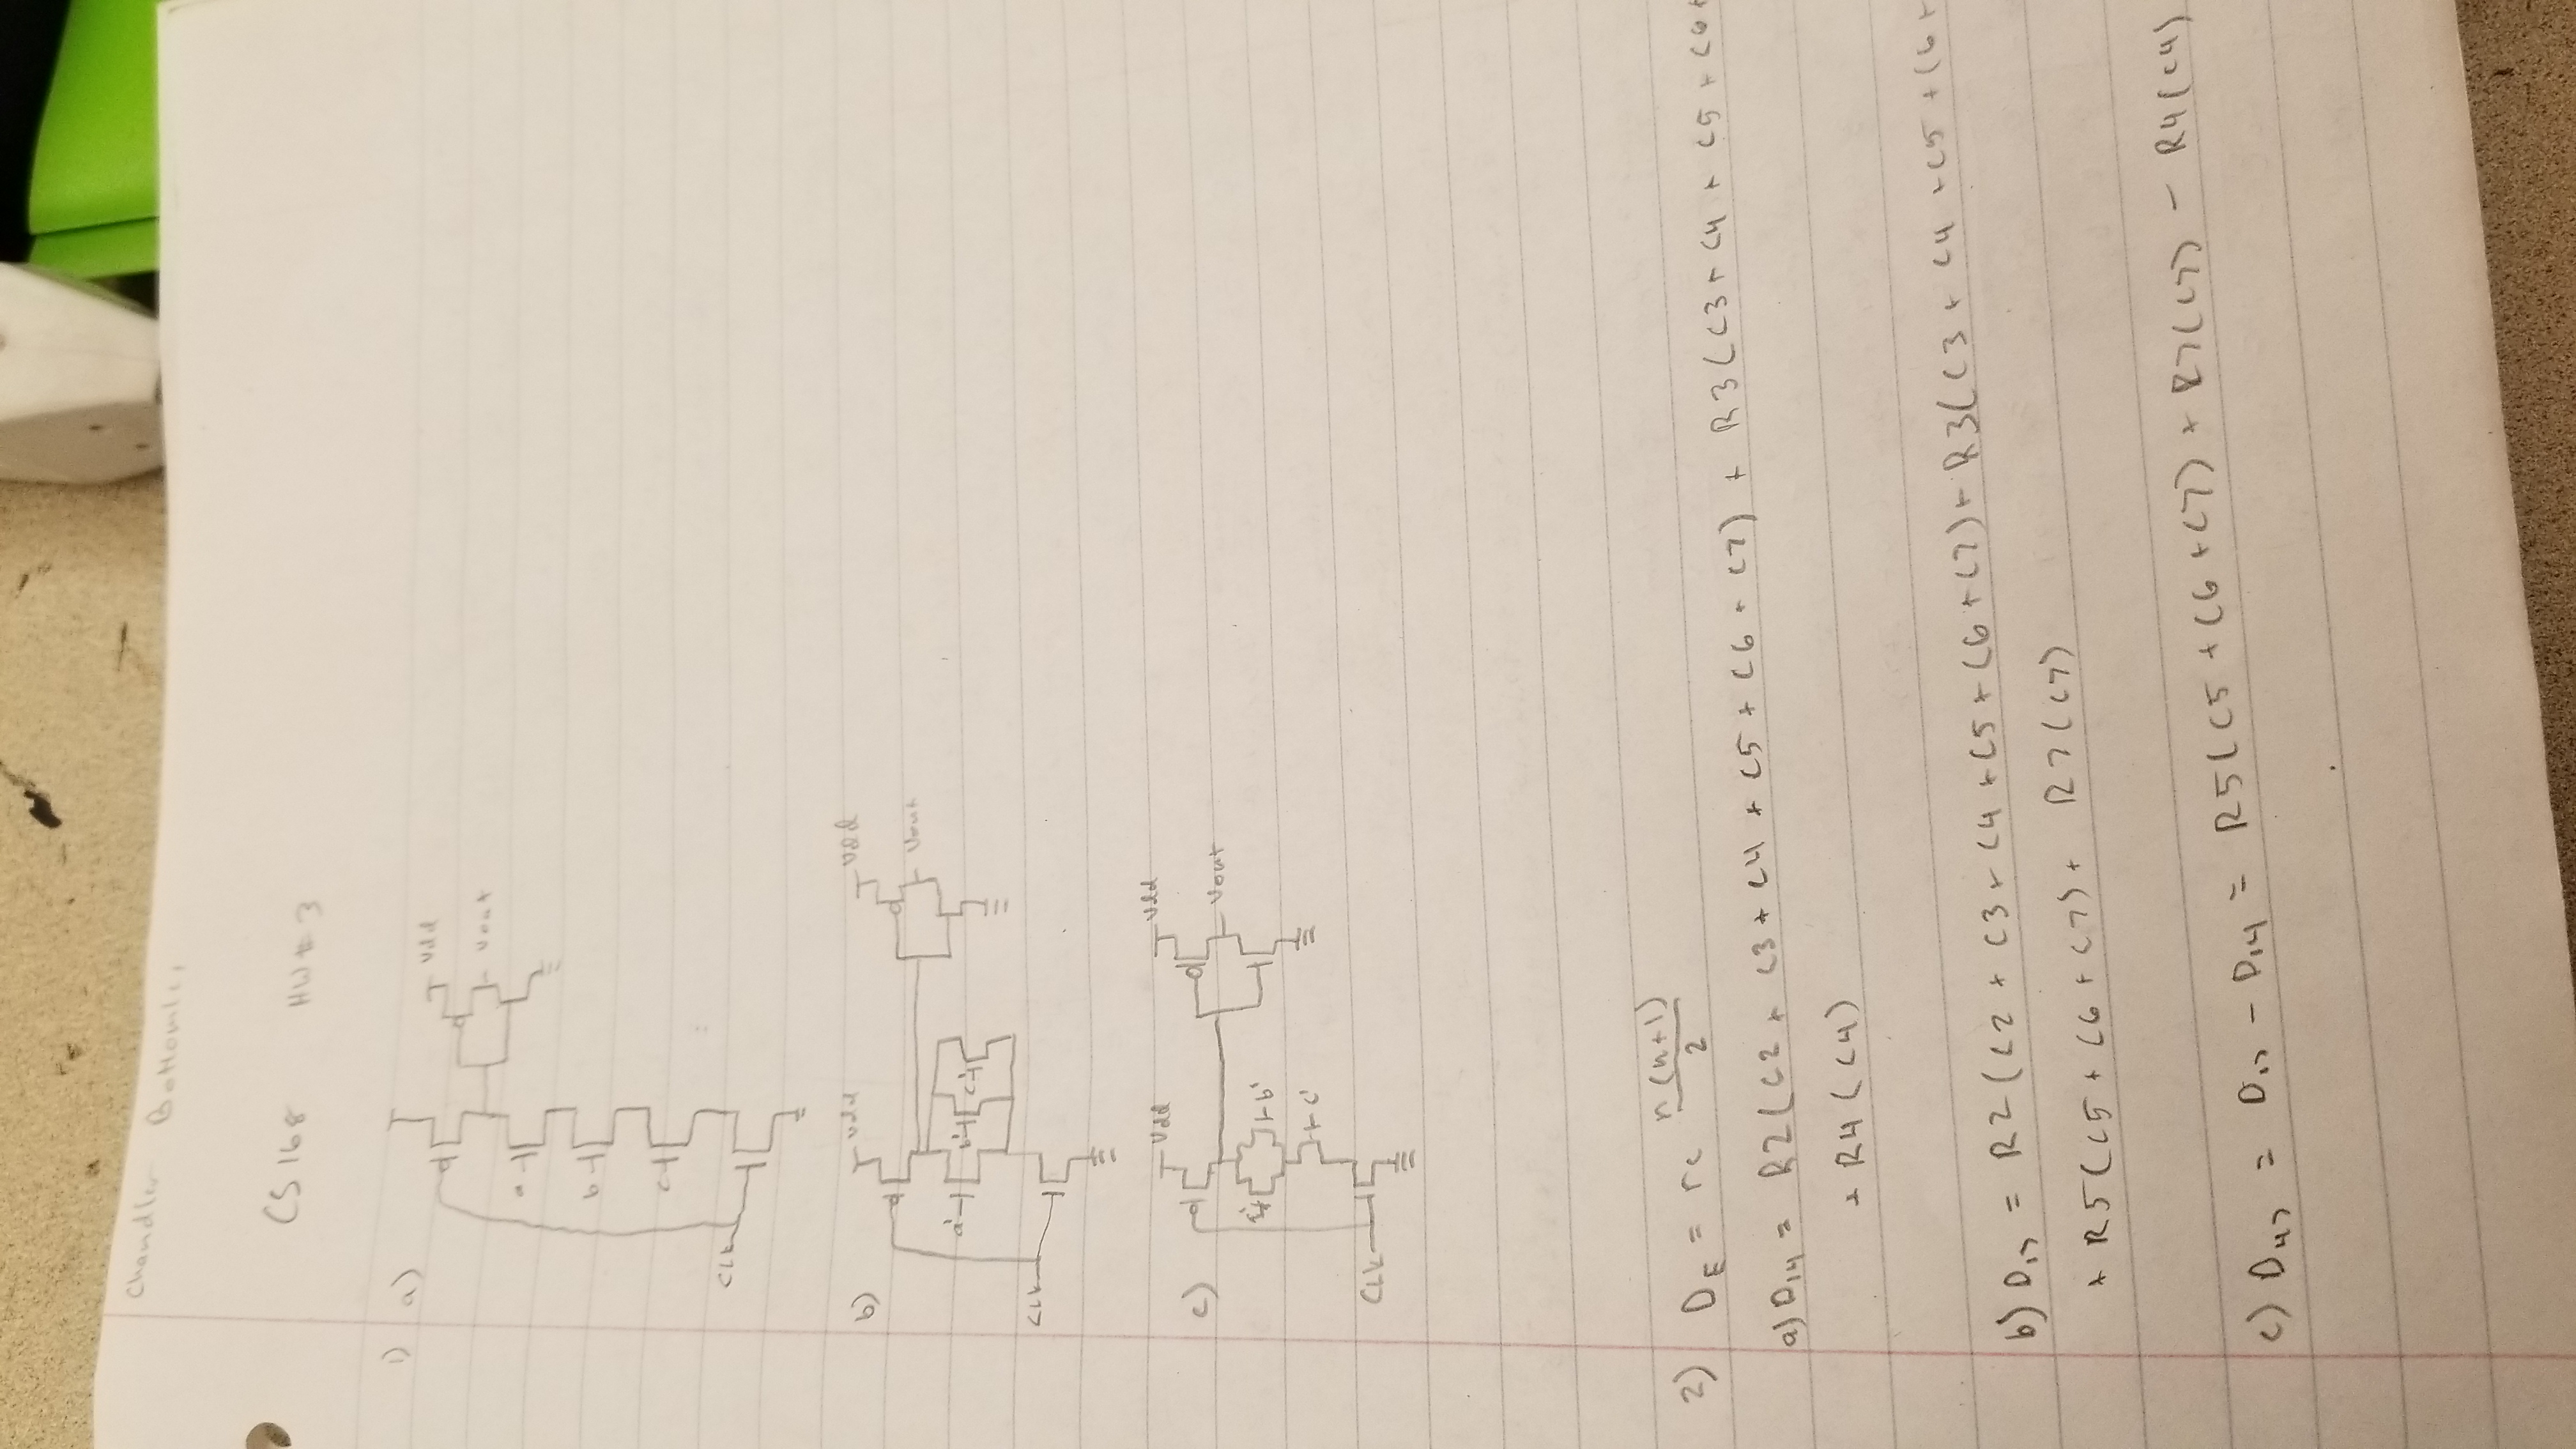 Chandler
CS 168 HW# 3
1) a)
Vdd
Vout
a
b
c
CLK
b)
Vdd
Vdd
Vout
a' b' c'
CLK
c)
Vdd
Vdd
Vout
b'
c'
CLK
2) D_E = rc n(n+1)/2
a) D14 = R2(C2 + C3 + C4 + C5 + C6 + C7) + R3(C3 + C4 + C5 + C6 +
+ R4(C4)
b) D17 = R2(C2 + C3 + C4 + C5 + C6 + C7) + R3(C3 + C4 + C5 + C6 +
+ R5(C5 + C6 + C7) + R7(C7)
c) D47 = D17 - D14 = R5(C5 + C6 + C7) + R7(C7) - R4(C4)